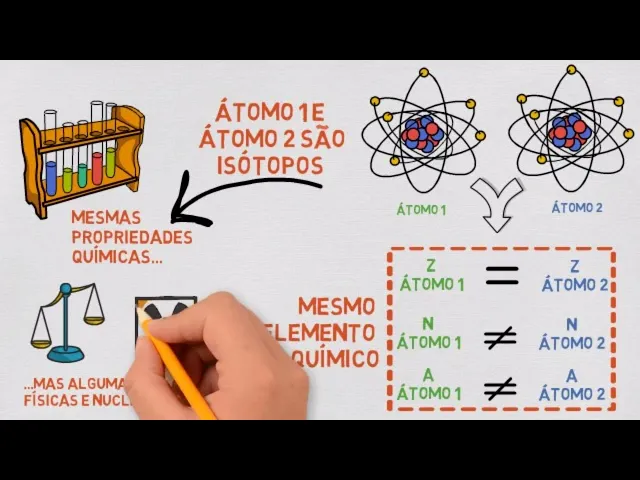 ÁTOMO 1 E
ÁTOMO 2 SÃO
ISÓTOPOS
ÁTOMO 1
ÁTOMO 2
MESMAS
PROPRIEDADES
QUÍMICAS...
Z
ÁTOMO 1
=
Z
ÁTOMO 2
N
ÁTOMO 1
≠
N
ÁTOMO 2
A
ÁTOMO 1
≠
A
ÁTOMO 2
MESMO
ELEMENTO
QUÍMICO
...MAS ALGUMA
FÍSICAS E